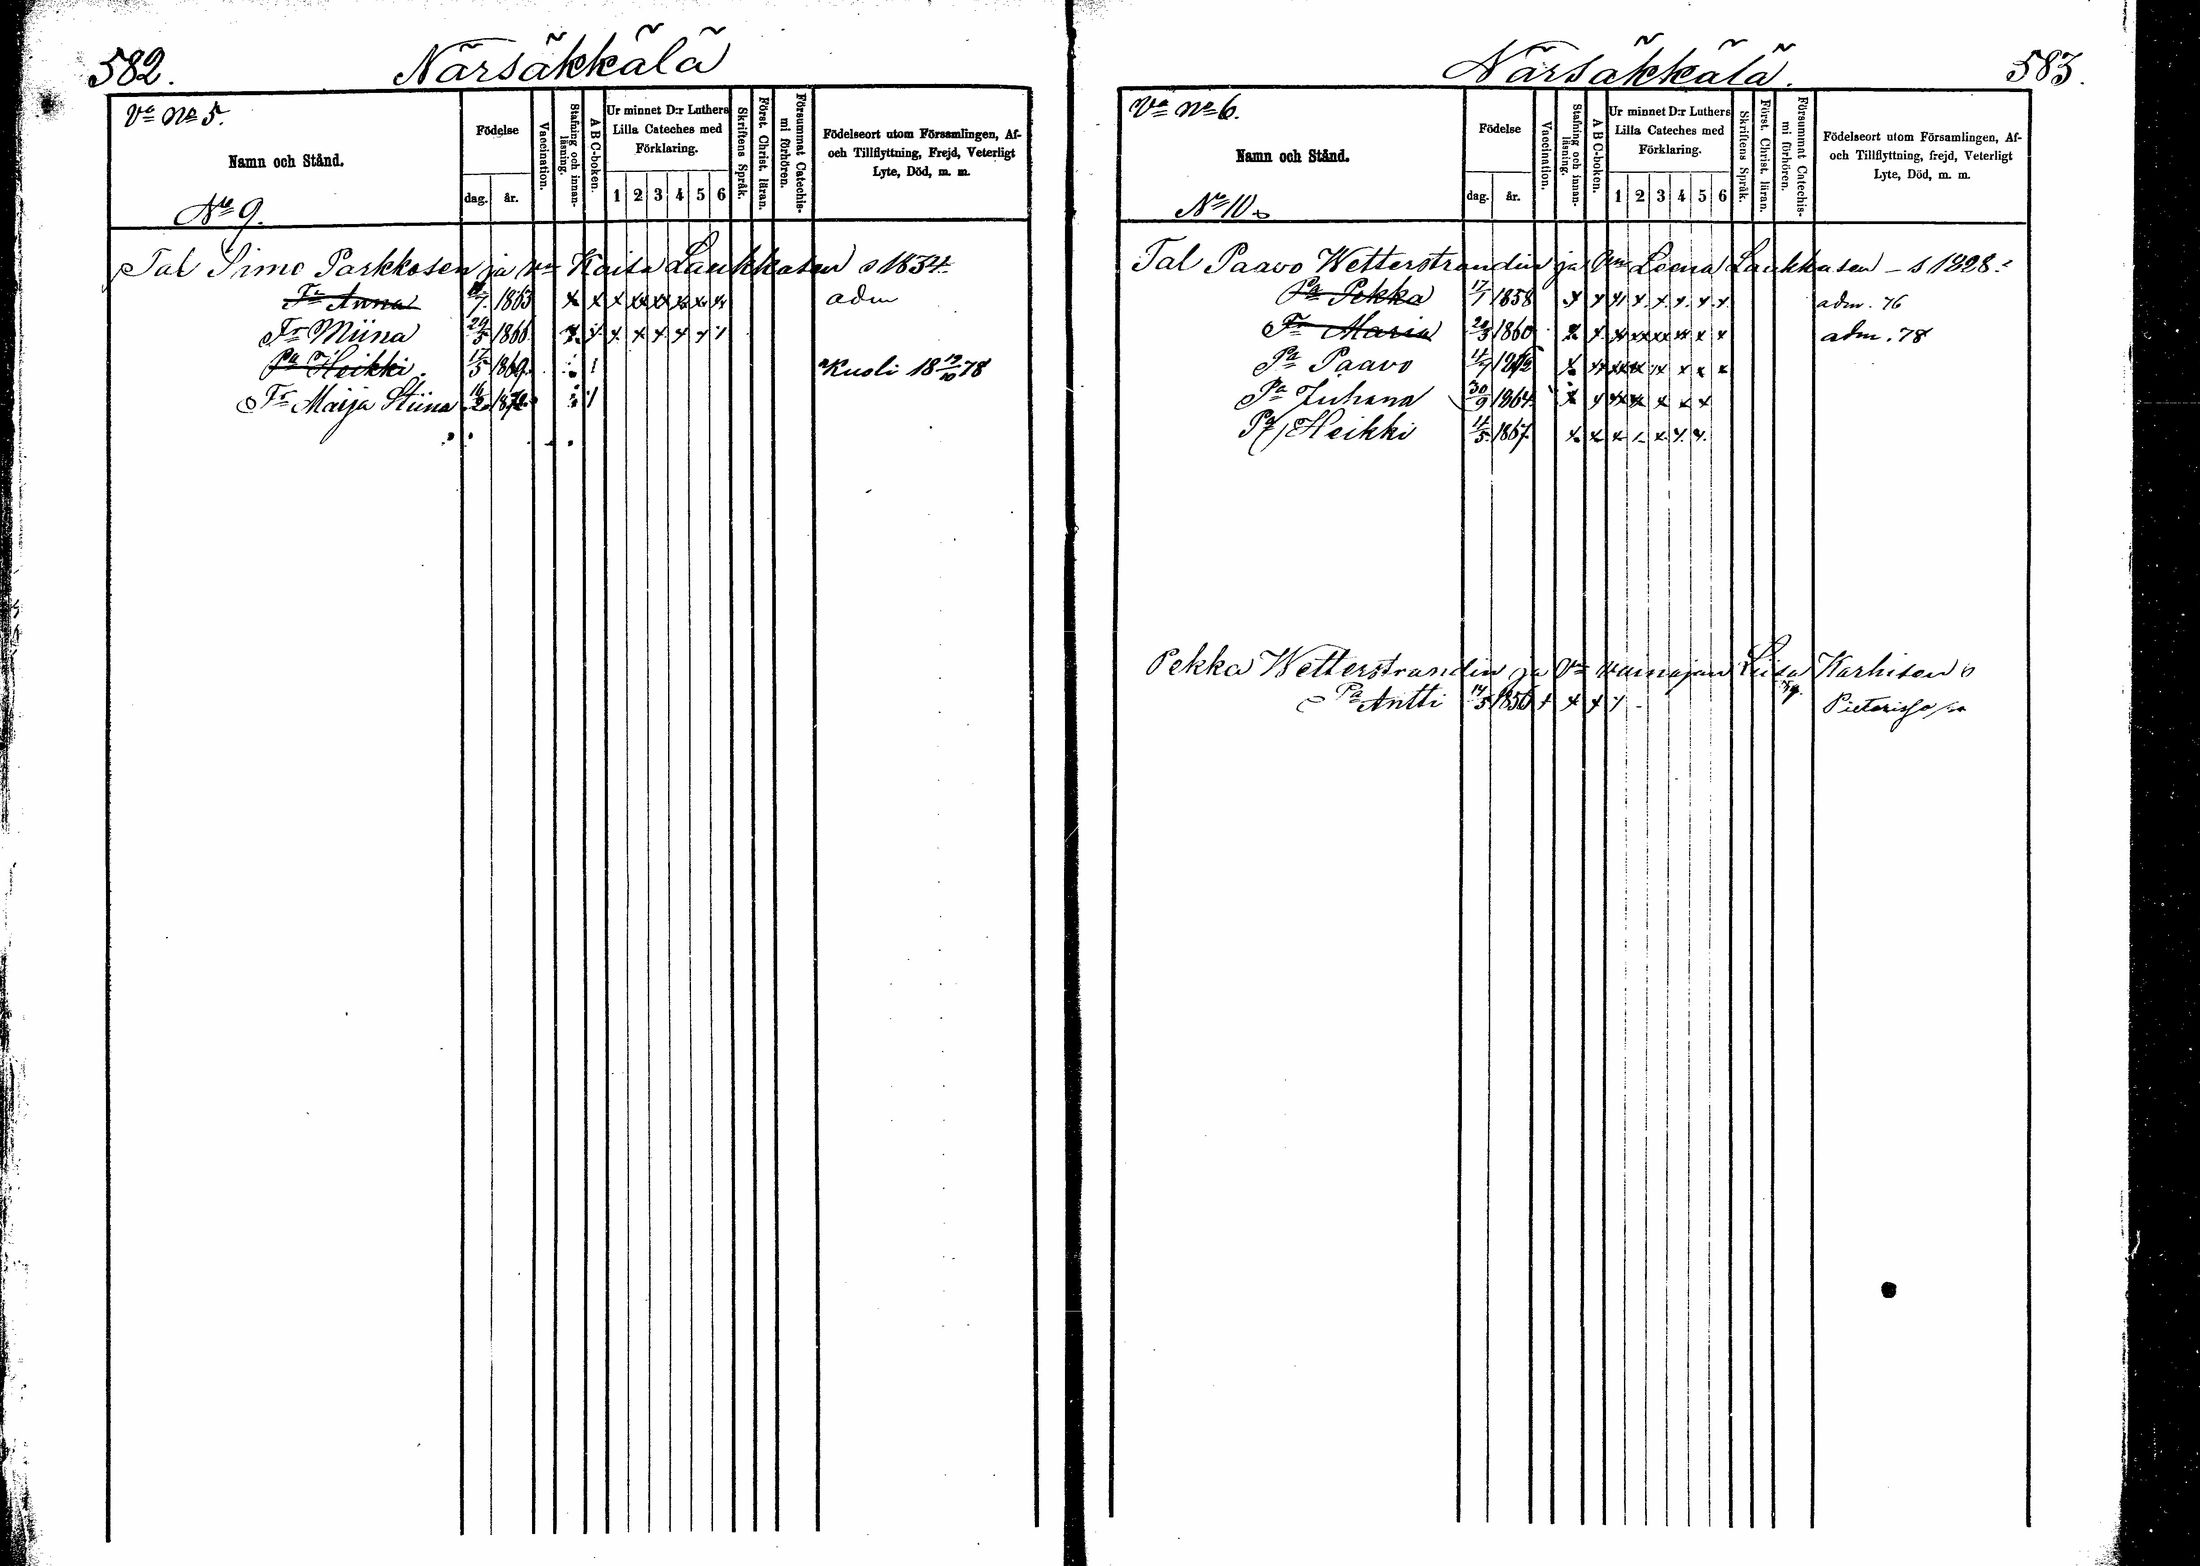 582.
Närsäkkälä
Va No 5.
Namn och Stånd.
No 9.
Födelse
dag.
år.
Vaccination.
Stafning och innanläsning.
A B C-boken.
Ur minnet D:r Luthers Lilla Cateches med Förklaring.
1 2 3 4 5 6
Skriftens Språk.
Först. Christ. läran.
Försummat Catechismi förhören.
Födelseort utom Församlingen, Af- och Tillflyttning, Frejd, Veterligt Lyte, Död, m. m.
Tal Simo Parkkosen ja Vm Kaisa Laukkasen s 1834.
Tr Anna 1863 x x x xx xx x x x adm
Tr Miina 29/5 1866 x x x x x x x 1
Pa Heikki. 17/5 1869. Kuoli 18 19/10 78
Tr Maija Stiina 16/2 1872
583.
Närsäkkälä.
Va No 6.
Namn och Stånd.
No 10
Födelse
dag.
år.
Vaccination.
Stafning och innanläsning.
A B C-boken.
Ur minnet D:r Luthers Lilla Cateches med Förklaring.
1 2 3 4 5 6
Skriftens Språk.
Först. Christ. läran.
Försummat Catechismi förhören.
Födelseort utom Församlingen, Af- och Tillflyttning, frejd, Veterligt Lyte, Död, m. m.
Tal Paavo Wetterstrandin ja Vm Leena Laukkasen - s 1828.
Pa Pekka 17/1 1858 x x x x x x x x adm. 76
Tr Maria 20/3 1860 x x x xx xx x x x adm. 78
Pa Paavo x x xx x x x x
Pa Juhana 30/9 1864 x x xx x x x x
Pa Heikki 1867. x x x x x x x
Pekka Wetterstrandin ja Vm vainajan Liisa Karhisen s
Pa Antti 14/5 1856 x x x x